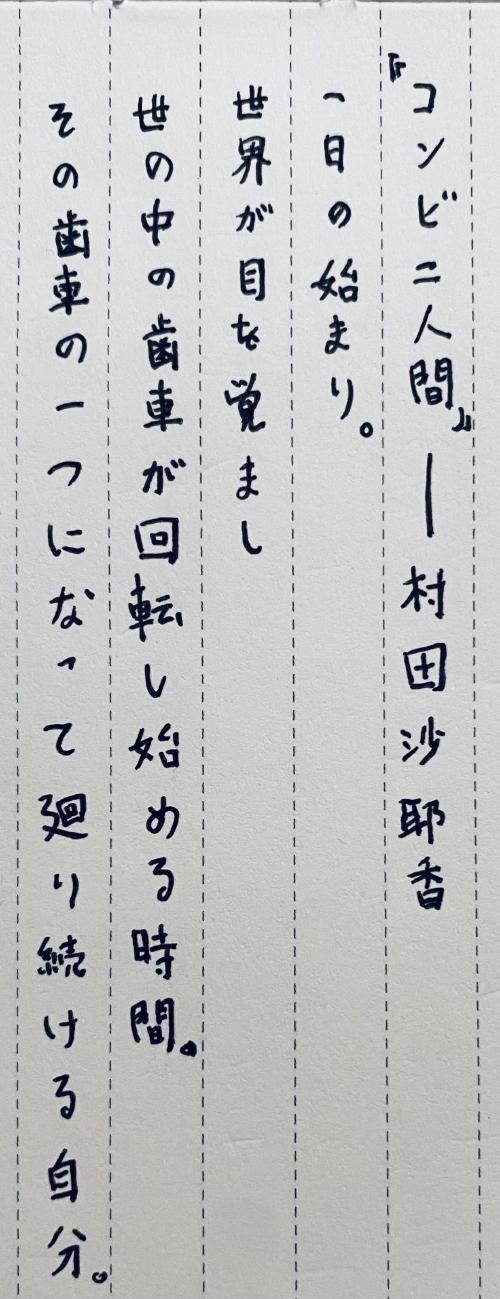 『コンビニ人間』—村田沙耶香
一日の始まり。
世界が目を覚まし
世の中の歯車が回転し始める時間。
その歯車の一つになって廻り続ける自分。